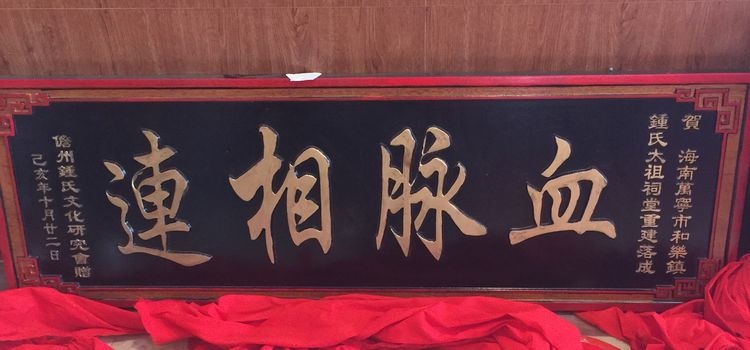 賀 海南萬寧市和樂鎮
鍾氏太祖祠堂重建落成
血脈相連
儋州鍾氏文化研究會贈
己亥年十月廿二日